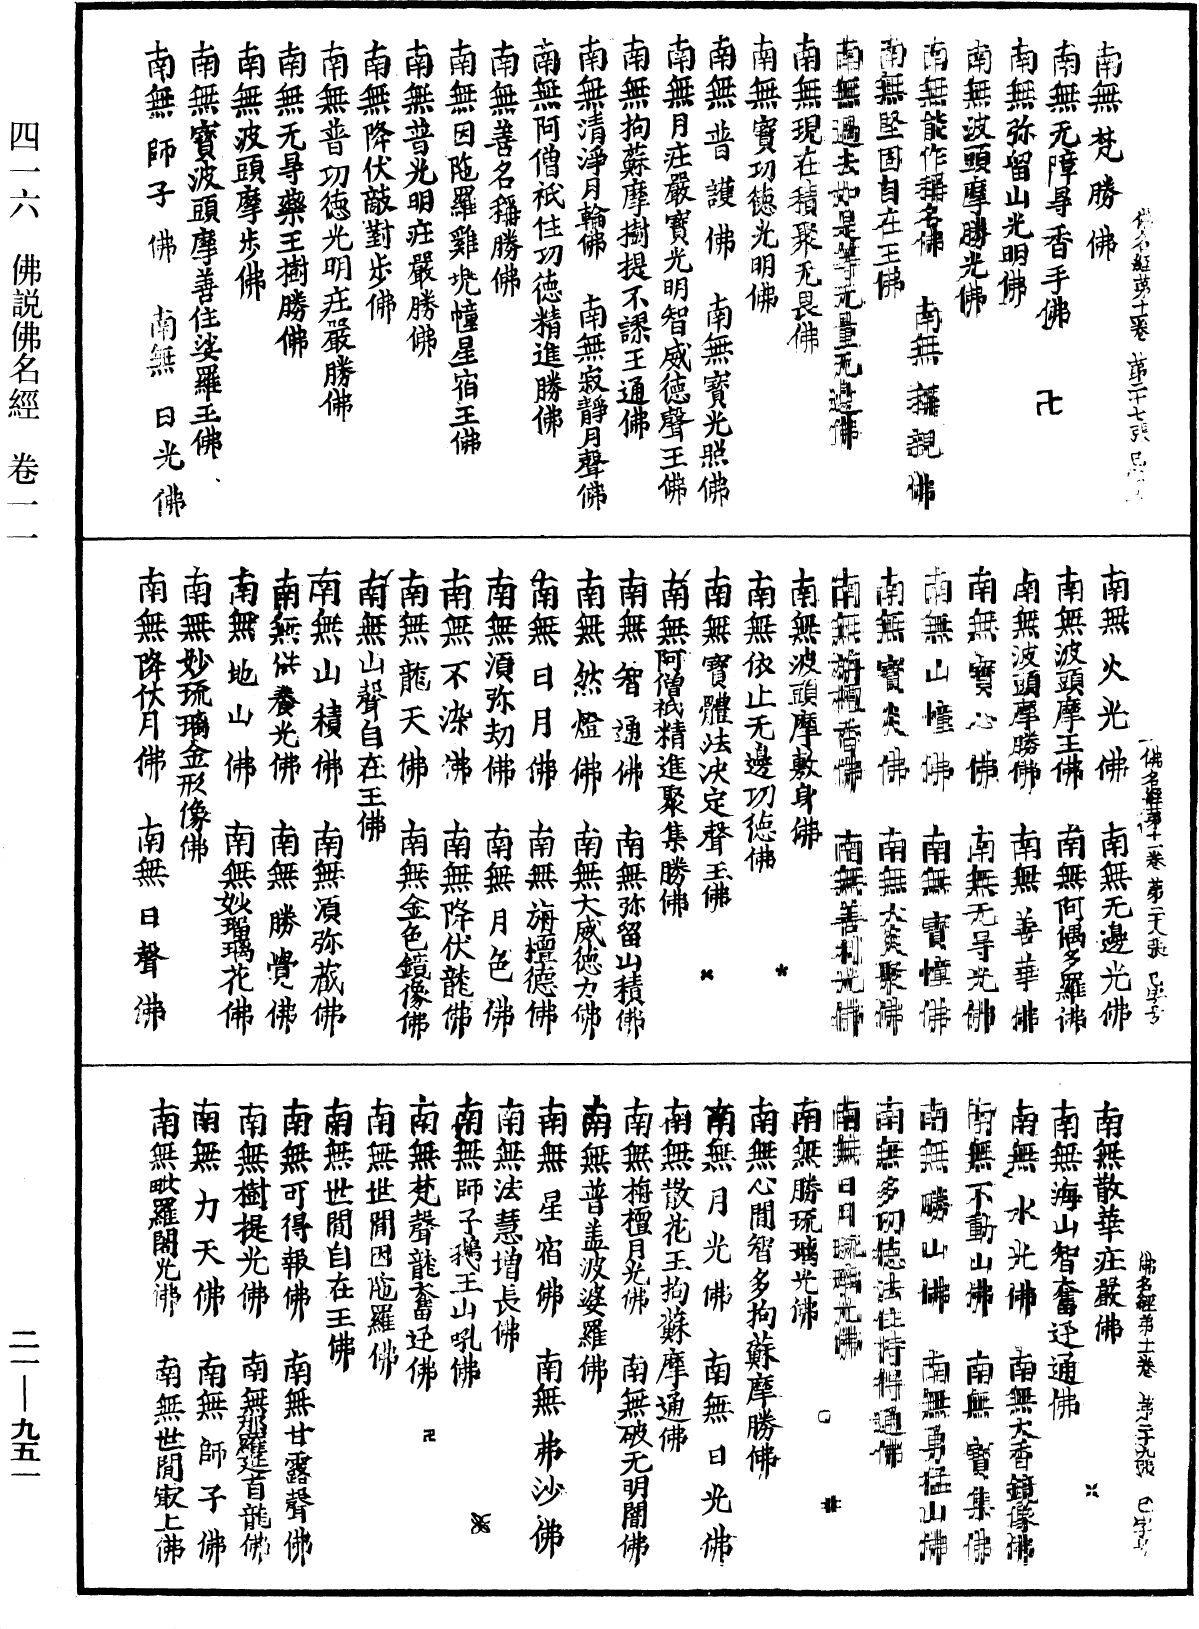 四一六 佛説佛名經 卷一一
二一—九五一
南無梵勝佛
南無无障㝵香手佛 卍
南無弥留山光明佛
南無波頭摩勝光佛
南無能作稱名佛 南無稱説佛
南無堅固自在王佛
南無過去如是等无量无邊佛
南無現在積聚无畏佛
南無寶功德光明佛
南無普護佛 南無寶光照佛
南無月庄嚴寶光明智威德聲王佛
南無拘蘇摩樹提不謬王通佛
南無清淨月輪佛 南無寂靜月聲佛
南無阿僧祇住功德精進勝佛
南無善名稱勝佛
南無因陁羅雞兜幢星宿王佛
南無普光明庄嚴勝佛
南無降伏敵對步佛
南無普功德光明庄嚴勝佛
南無无㝵藥王樹勝佛
南無波頭摩步佛
南無寶波頭摩善住娑羅王佛
南無師子佛 南無日光佛
佛名經第十一卷 第二十七張
南無火光佛 南無无邊光佛
南無波頭摩王佛 南無阿偶多羅佛
南無波頭摩勝佛 南無善華佛
南無寶心佛 南無无㝵光佛
南無山幢佛 南無寶幢佛
南無寶炎佛 南無大炎聚佛
南無栴檀香佛 南無善利光佛
南無波頭摩敷身佛
南無依止无邊功德佛
南無寶體法决定聲王佛
南無阿僧祇精進聚集勝佛
南無智通佛 南無弥留山積佛
南無然燈佛 南無大威德力佛
南無日月佛 南無栴檀德佛
南無須弥劫佛 南無月色佛
南無不染佛 南無降伏龍佛
南無龍天佛 南無金色鏡像佛
南無山聲自在王佛
南無山積佛 南無須弥藏佛
南無供養光佛 南無勝覺佛
南無地山佛 南無妙瑠璃花佛
南無妙琉璃金形像佛
南無降伏月佛 南無日聲佛
佛名經第十一卷 第二十八張 巳字号
南無散華庄嚴佛
南無海山智奮迅通佛
南無水光佛 南無大香鏡像佛
南無不動山佛 南無寶集佛
南無勝山佛 南無勇猛山佛
南無多功德法住持得通佛
南無日月琉璃光佛
南無勝琉璃光佛
南無心間智多拘蘇摩勝佛
南無月光佛 南無日光佛
南無散花王拘蘇摩通佛
南無栴檀月光佛 南無破无明闇佛
南無普盖波婆羅佛
南無星宿佛 南無弗沙佛
南無法慧增長佛
南無師子鵝王山吼佛
南無梵聲龍奮迅佛 卍
南無世間因陁羅佛
南無世間自在王佛
南無可得報佛 南無甘露聲佛
南無樹提光佛 南無那羅延首龍佛
南無力天佛 南無師子佛
南無毗羅闍光佛 南無世間㝡上佛
佛名經第十一卷 第二十九張 巳字号